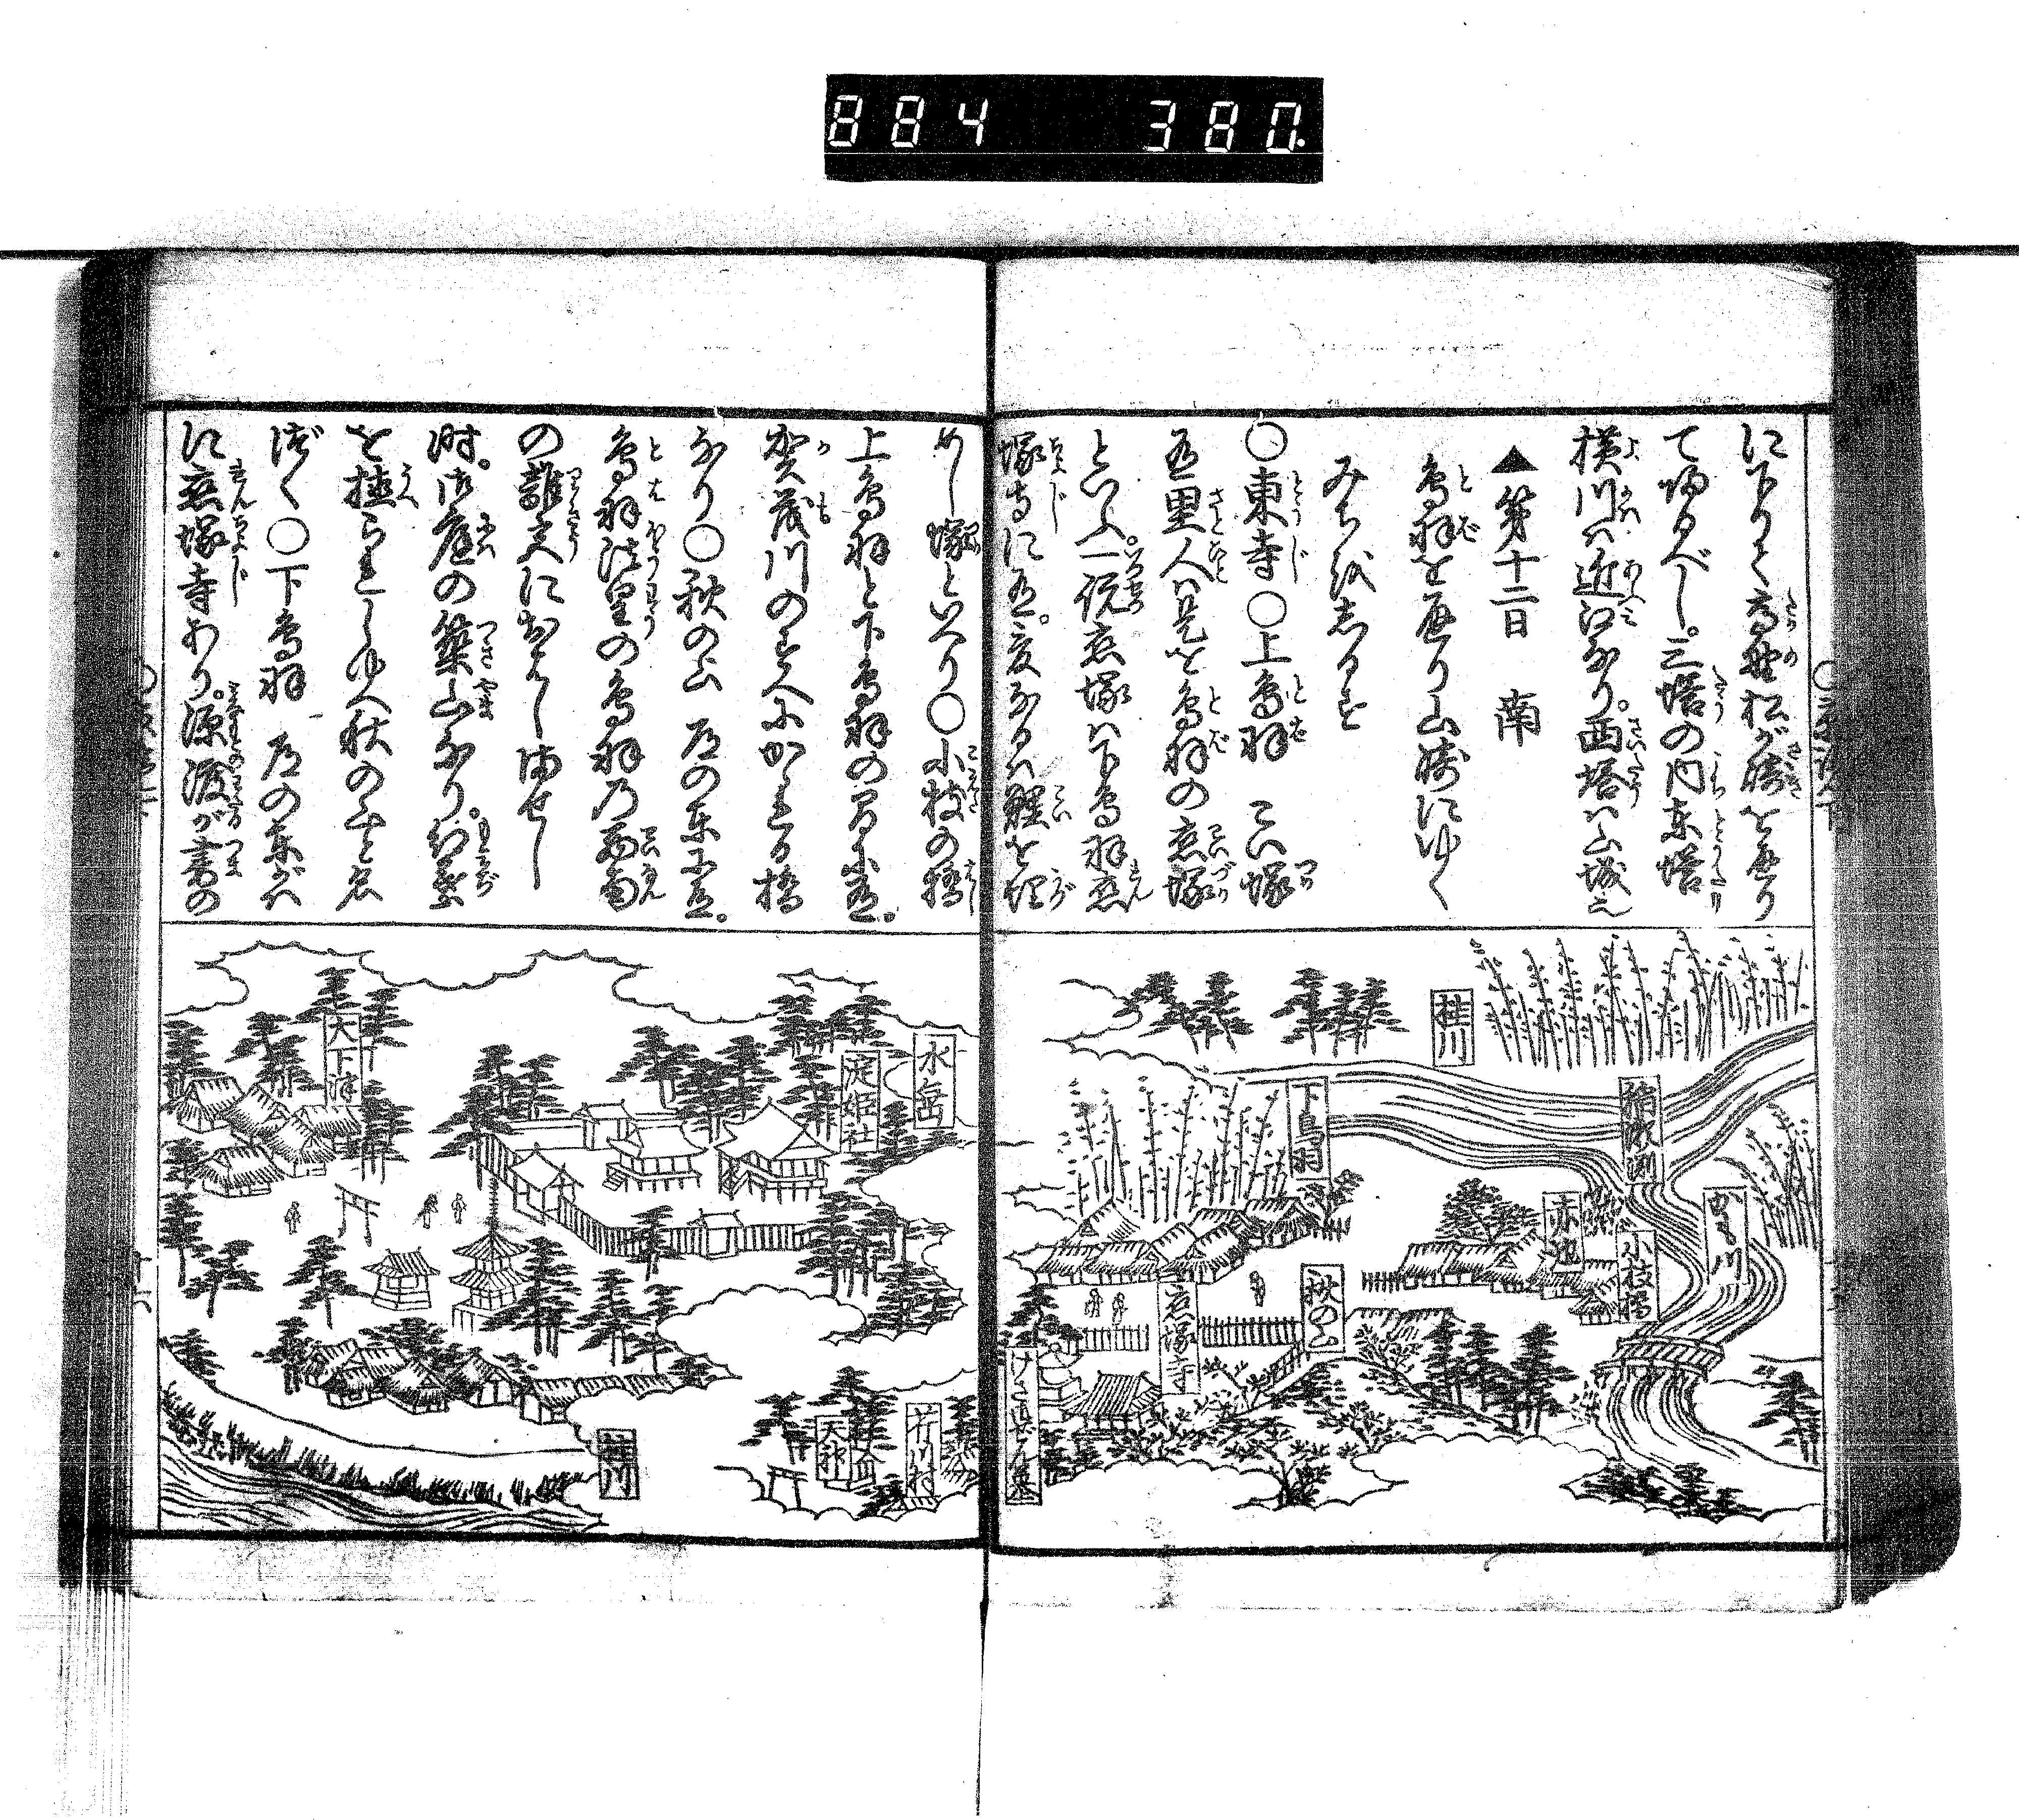 884 380.
に下りて高野松が崎を通り
て帰るべし。三塔の内東塔
横川は近江なり。西塔は山城也
▲第十二日 南
鳥羽を通り山崎にゆく
みちを志るす
○東寺○上鳥羽 こい塚
有里人は是を鳥羽の恋塚
といふ。一説恋塚は下鳥羽恋
塚寺に有。爰なるは鯉を埋
めし塚といへり○小枝の橋
上鳥羽と下鳥羽の間に有。
賀茂川のすへにかゝれる橋
なり○秋の山 道の東に有。
鳥羽法皇の鳥羽乃
の離宮におはしませし
時。御庭の築山なり。紅葉
を植られしゆへ秋の山と名
づく○下鳥羽 道の東がは
に恋塚寺あり。源渡が妻の
桂川
下鳥羽
かも川
赤池
小枝橋
秋の山
恋塚寺
水垂
淀姫社
大下津
桂川
天神